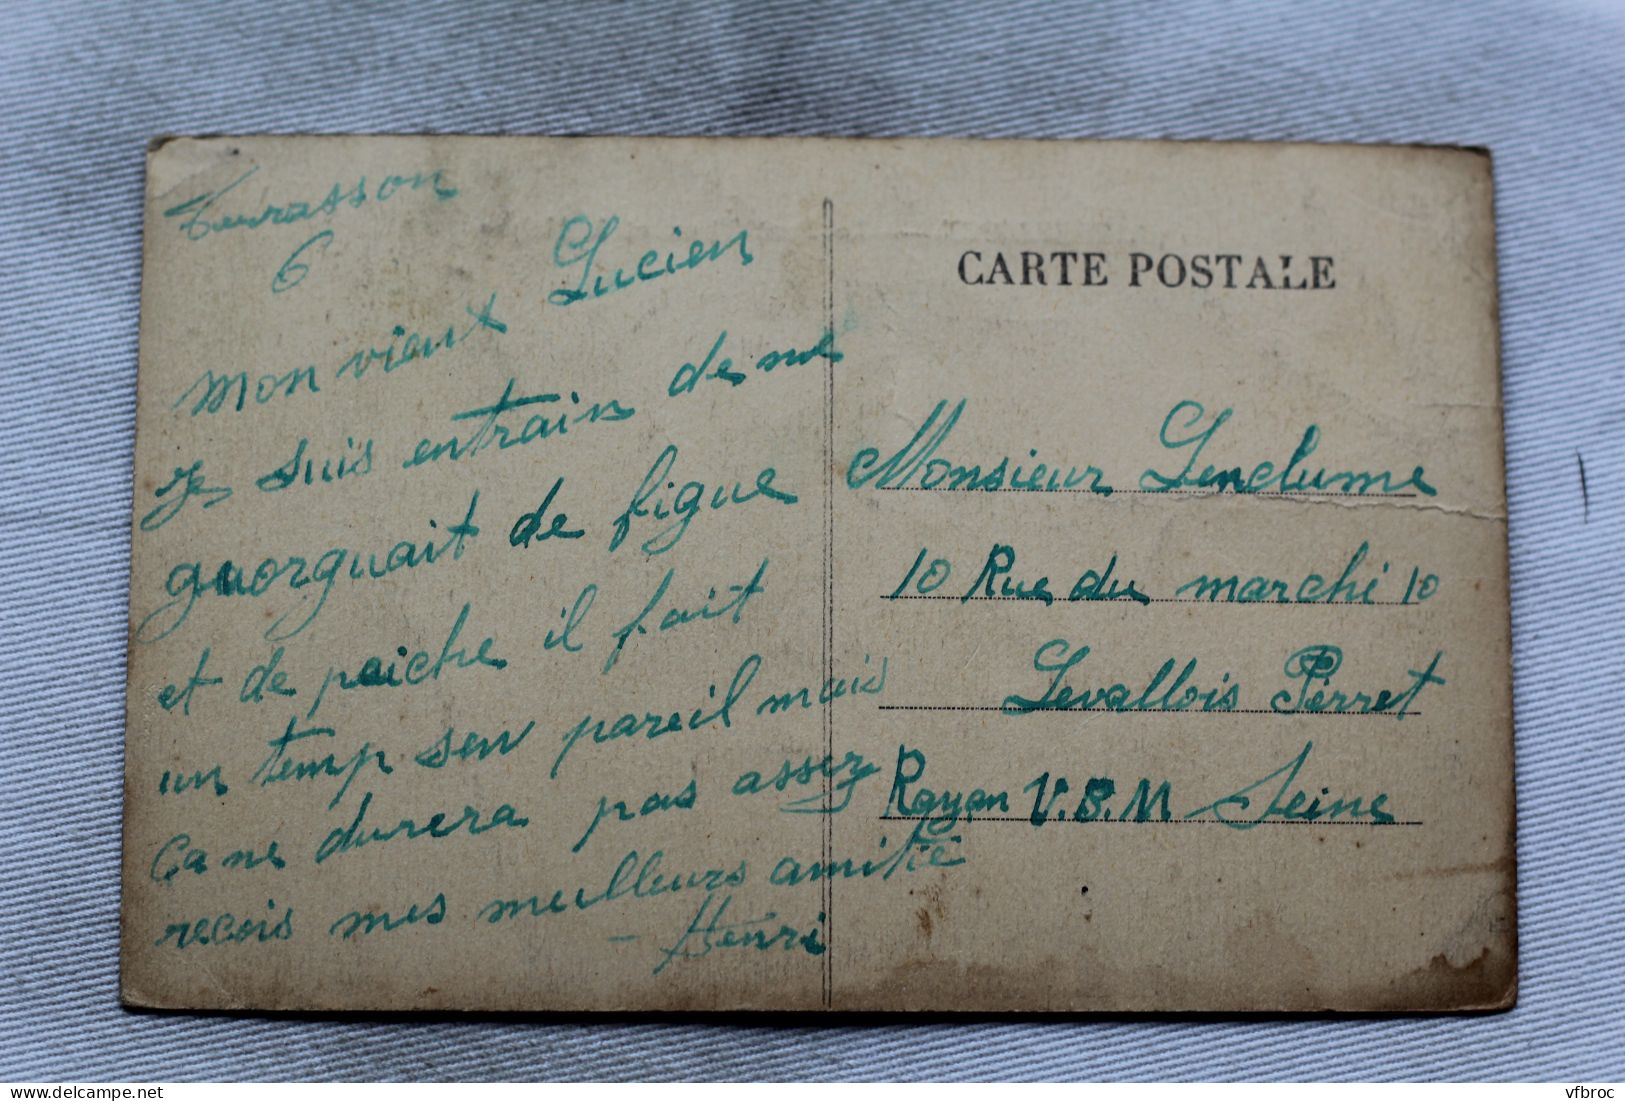 Terrasson
6
Mon vieux Lucien
Je suis entrain de me
guorguait de figue
et de paiche il fait
un temp sen pareil mais
ça ne durera pas assez
recois mes meilleurs amitié
- Henri
CARTE POSTALE
Monsieur Lenclume
10 Rue du marchi 10
Levallois Perret
Rayon V.B.M Seine
delcampe.net
vfbroc